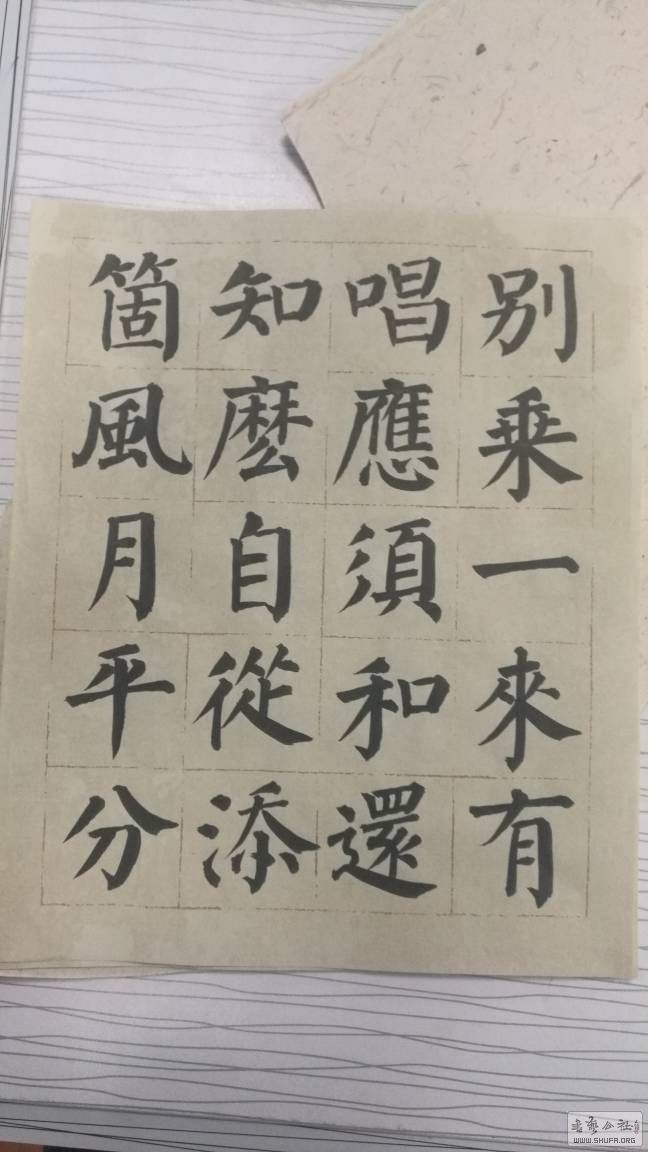 别乘一來有
唱應須和還
知麽自從添
箇風月平分
书艺公社
WWW.SHUFA.ORG